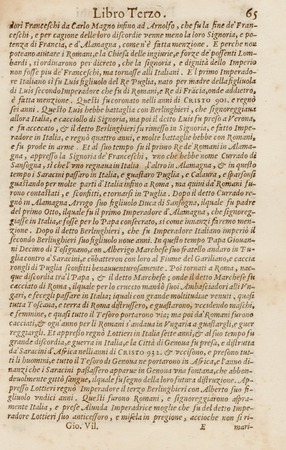 Libro Terzo. 65
dori Franceschi da Carlo Magno infino ad Arnolfo, che fu la fine de' Fran-
ceschi, e per cagione delle loro discordie venne meno la loro Signoria, e po-
tenza di Francia, e d'Alamagna, come n'è fatta menzione. E perchè non
poteano aitare i Romani, e la Chiesa dalle ingiurie, e forze de' possenti Lom-
bardi, si ordinarono per dicreto, che la signoria, e dignità dello Imperio
non fosse più de' Franceschi, ma tornasse alli Italiani. E'l primo Imperado-
re Italiano si fu Luis figliuolo del Re Puglia, nato per madre della figliuola
di Luis secondo Imperadore che fu di Romani, e Re di Fràcia, onde addietro,
è fatta menzione. Questi fu coronato nelli anni di CRISTO 901. e regnò
sei anni. Questo Luis hebbe battaglia con Berlinghieri, che signoreggiava
allora Italia, e cacciollo di Signoria. Ma poi il detto Luis fu preso a Verona,
e fu accecato, & il detto Berlinghieri fu rimesso in Signoria, e fatto Impe-
radore in Italia, e regnò quattro anni, e molte battaglie hebbe con Romani,
e fu prode in arme. Et al suo tempo fu il primo Re de' Romani in Alama-
gna, appresso la Signoria de' Franceschi, uno che hebbe nome Currado di
Sansogna, sì che l'uno regnava in Italia, l'altro in Alamagna, & in questo
tempo i Saracini passaro in Italia, e guastaro Puglia, e Calavra, e sparsersi
guastando per molte parti d'Italia infino a Roma, ma quini da Romani fu-
rono contastati, e sconfitti, e tornarsi in Puglia. Dopo il detto Currado re-
gnò in Alamagna Arrigo suo figliuolo Duca di Sansogna, ilquale fu padre
del primo Otto, ilquale fu il primo Imperadore d'Alamagna, che signoreg-
giasse in Italia, e fosse per lo Papa consecrato, sì come innanzi faremo men-
zione. Dopo il detto Berlinghieri, che fu Imperadore Italiano imperiò il
secondo Berlinghieri suo figliuolo nove anni. In questo tempo Papa Giovan-
ni Decimo di Tosignano, con Alberigo Marchese suo fratello andaro in Pu-
glia contro a' Saracini, e còbatterono con loro al Fiume del Gariliano, e caccia
rongli di Puglia sconfitti bene avventurosamente. Poi tornati a Roma, nac-
que discordia tra'l Papa, e il detto Marchese; onde il detto Marchese fu
cacciato di Roma, ilquale per lo cruccio mandò suoi Ambasciadori alli Vn-
gari, e fecegli passare in Italia; iquali con grande moltitudine venuti, quasi
tutta Toscana, e terra di Roma distrussero, e guastarono, uccidendo maschi,
e femmine, e quasi tutto il Tesoro portarono via; ma poi da' Romani furono
cacciati, & ogni anno per li Romani s'andava in Vngaria a guastargli, e guer
reggiargli. Et appresso regnò Lottieri in Italia sette anni, & al suo tempo fu
grande discordia, e guerra in Italia, e la Città di Genova fu presa, e distrutta
da Saracini d'Africa nell'anni di CRISTO 932. & uccisono, e presono tut-
ti li huomini, e tutto il Tesoro di Genova ne portarono in Africa, e l'anno di-
nanzi che i Saracini passassero apparve in Genova una fontana, che abbon-
devolmente gittò sangue, ilquale fu segno della loro futura distruzione. Ap-
presso Lottieri regnò Imperadore il terzo Berlinghieri con Alberto suo fi-
gliuolo undici anni. Questi furono Romani, e signoreggiarono aspra-
mente Italia, e prese Aiunda Imperadrice moglie che fu del detto Impe-
radore Lottieri suo anticessore, e misela in pregione, acciocchè non si ri-
Gio. Vil. E mari-